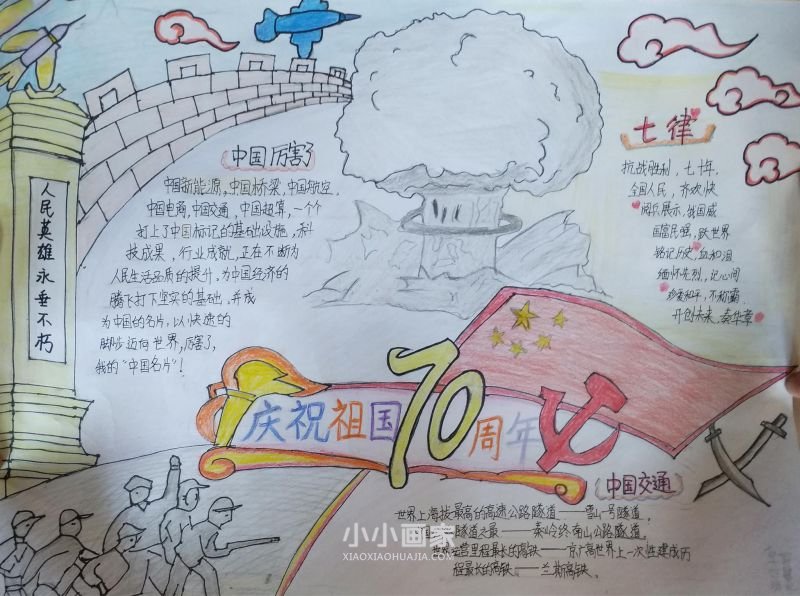 人民英雄永垂不朽
中国厉害了
中国新能源,中国桥梁,中国航空,
中国电商,中国交通,中国超算,一个个
打上了中国标记的基础设施,科
技成果,行业成就,正在不断为
人民生活品质的提升,为中国经济的
腾飞打下坚实的基础,并成
为中国的名片,以快速的
脚步迈向世界,厉害了,
我的“中国名片”!
七律
抗战胜利,七十年,
全国人民,齐欢快
阅兵展示,我国威
国富民强,跃世界
铭记历史,血和泪
缅怀先烈,记心间
珍爱和平,不称霸
开创未来,奏华章
庆祝祖国70周年
中国交通
世界上海拔最高的高速公路隧道——雪山一号隧道。
隧道之最——秦岭终南山公路隧道。
世界运营里程最长的高铁——京广高世界上一次性建成历
程最长的高铁——兰新高铁。
小小画家
XIAOXIAOHUAJIA.COM